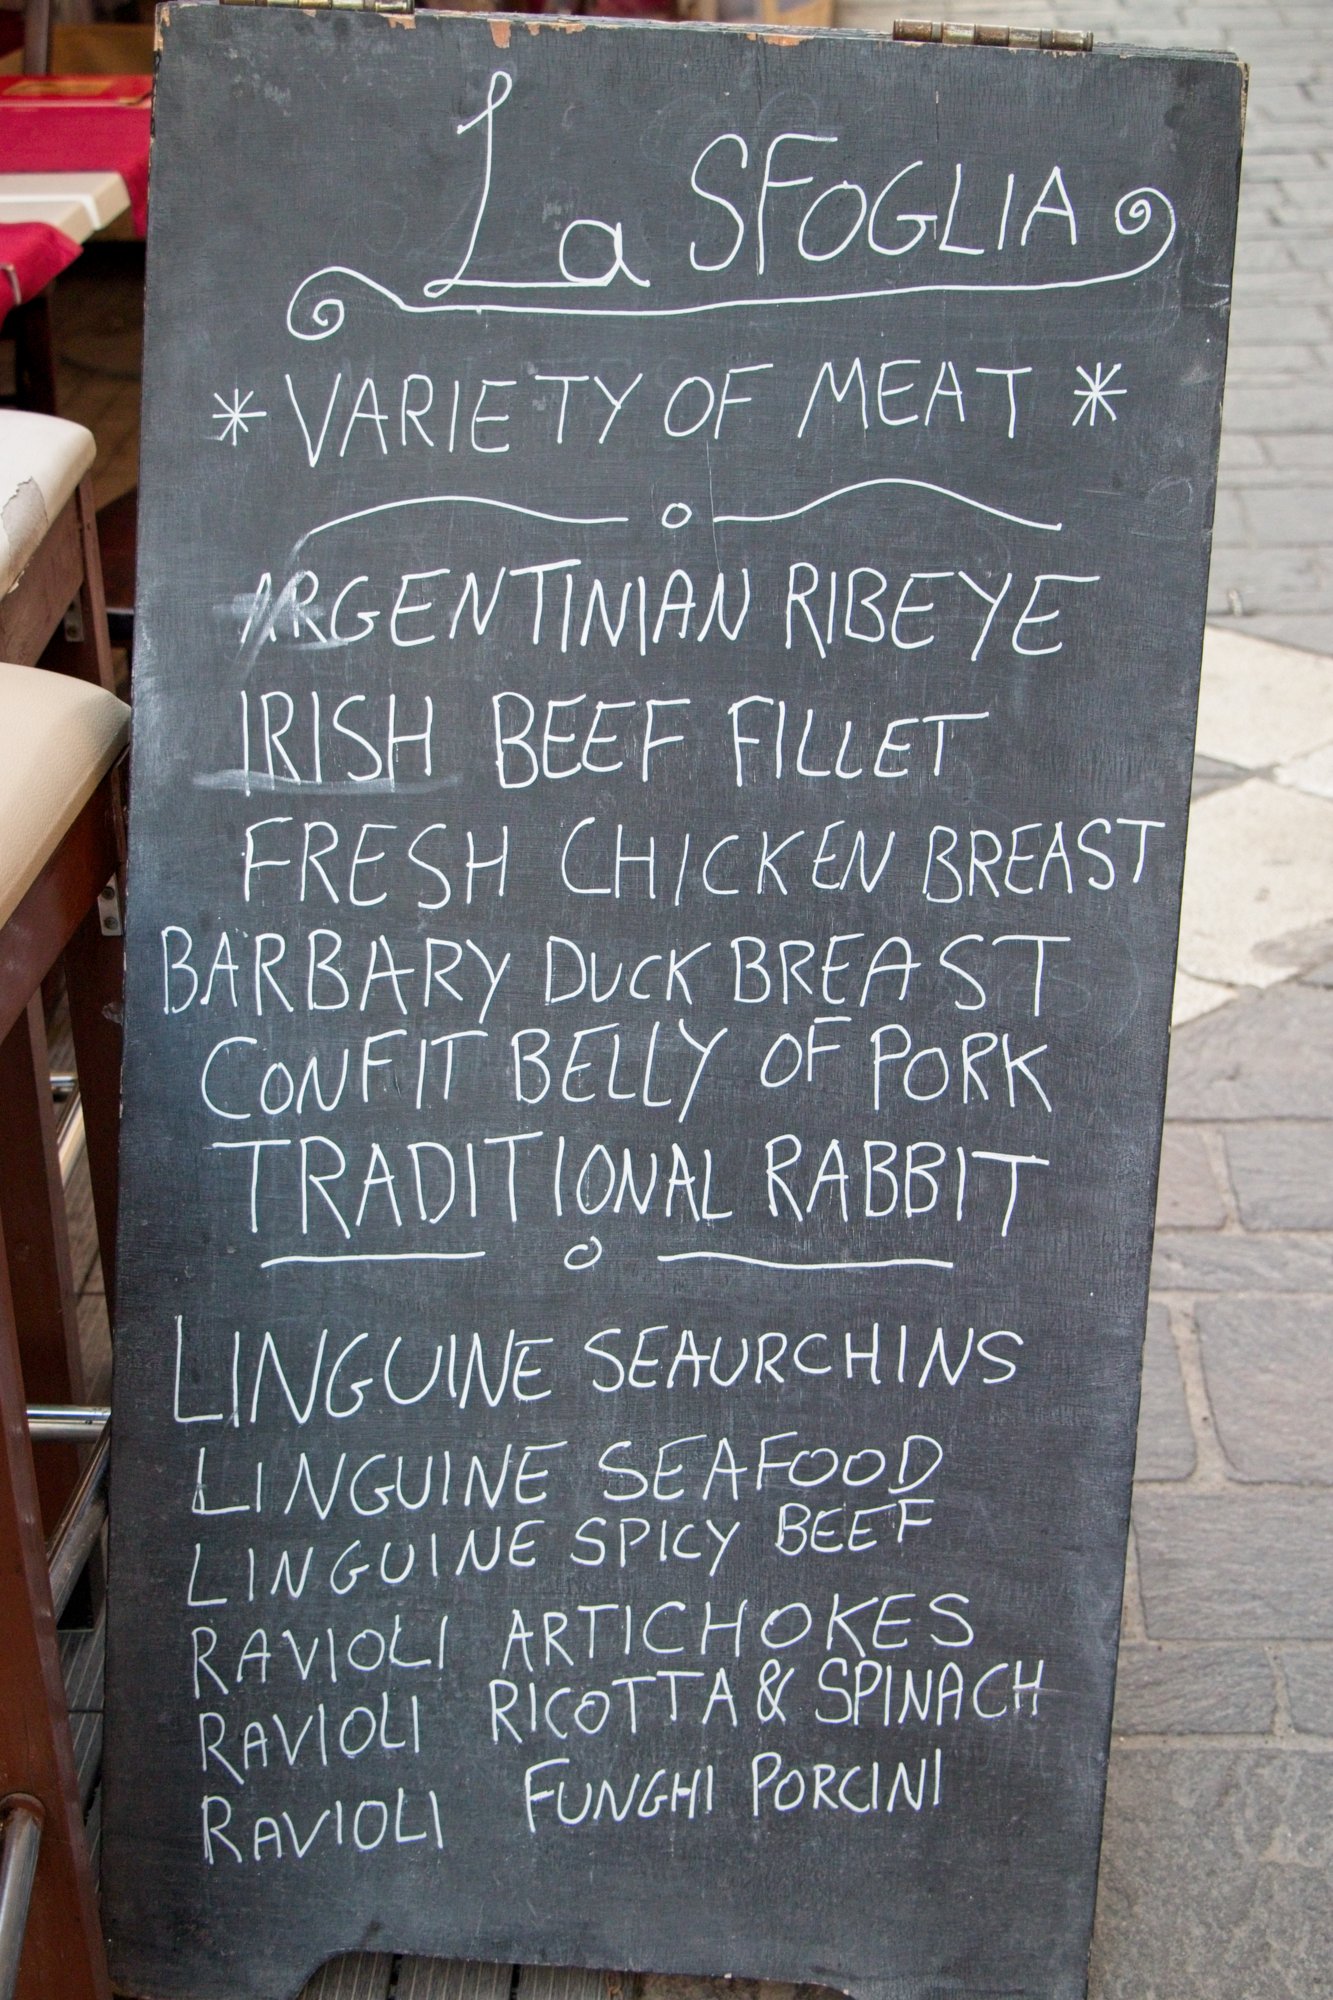 La SFOGLIA
* VARIETY OF MEAT *
ARGENTINIAN RIBEYE
IRISH BEEF FILLET
FRESH CHICKEN BREAST
BARBARY DUCK BREAST
CONFIT BELLY OF PORK
TRADITIONAL RABBIT
LINGUINE SEAURCHINS
LINGUINE SEAFOOD
LINGUINE SPICY BEEF
RAVIOLI ARTICHOKES
RAVIOLI RICOTTA & SPINACH
RAVIOLI FUNGHI PORCINI